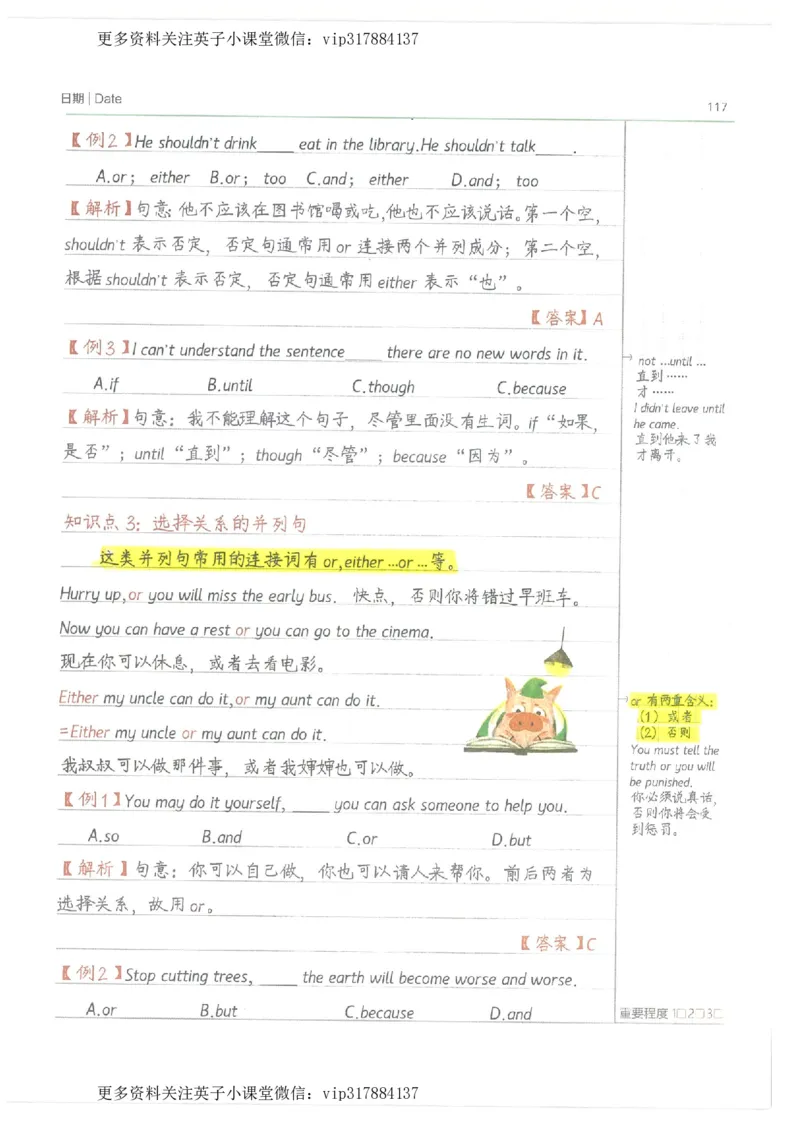 更多资料关注英子小课堂微信：vip317884137
日期 | Date
117
【例2】He shouldn't drink____ eat in the library.He shouldn't talk____.
A.or； either B.or； too C.and； either D.and； too
【解析】句意：他不应该在图书馆喝或吃,他也不应该说话。第一个空，
shouldn't 表示否定，否定句通常用or 连接两个并列成分；第二个空，
根据shouldn't 表示否定，否定句通常用 either 表示“也”。
【答案】A
【例3】I can't understand the sentence____ there are no new words in it.
A.if B.until C.though C.because
【解析】句意：我不能理解这个句子，尽管里面没有生词。if“如果，
是否”；until“直到”；though“尽管”；because“因为”。
【答案】C
not …until …
直到……
才……
I didn't leave until
he came.
直到他来了我
才离开。
知识点3：选择关系的并列句
这类并列句常用的连接词有 or,either …or …等。
Hurry up,or you will miss the early bus. 快点，否则你将错过早班车。
Now you can have a rest or you can go to the cinema.
现在你可以休息，或者去看电影。
Either my uncle can do it,or my aunt can do it.
=Either my uncle or my aunt can do it.
我叔叔可以做那件事，或者我婶婶也可以做。
or 有两重含义：
（1）或者
（2）否则
You must tell the
truth or you will
be punished.
你必须说真话，
否则你将会受
到惩罚。
【例1】You may do it yourself, ____ you can ask someone to help you.
A.so B.and C.or D.but
【解析】句意：你可以自己做，你也可以请人来帮你。前后两者为
选择关系，故用 or。
【答案】C
【例2】Stop cutting trees, ____ the earth will become worse and worse.
A.or B.but C.because D.and
重要程度 1□2□3□
更多资料关注英子小课堂微信：vip317884137